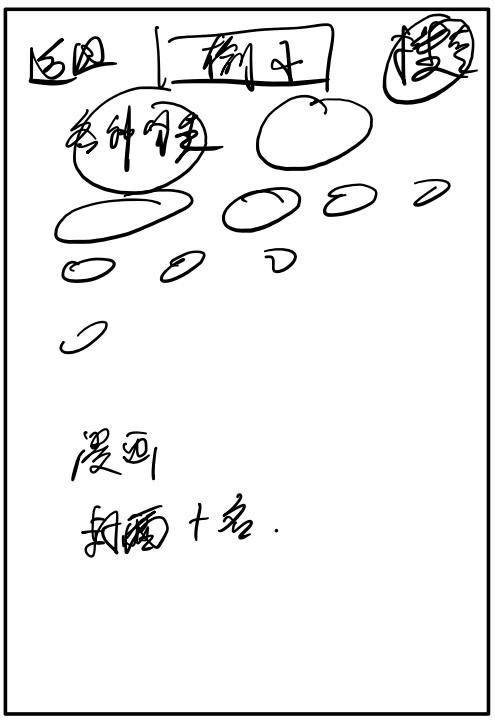 返回 搜索
各种分类
漫画
封面十名.